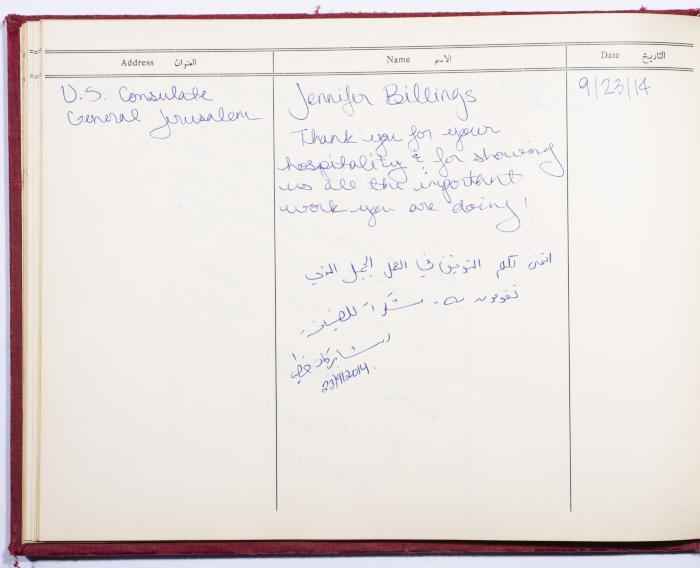 Address العنوان Name الاسم Date التاريخ
U.S. Consulate
General Jerusalem
Jennifer Billings
9/23/14
Thank you for your
hospitality & for showing
us all the important
work you are doing!
اتمنى لكم التوفيق في العمل الجميل الذي
تقومون به. شكراً للضيافة.
رشا بركات
23/9/2014.